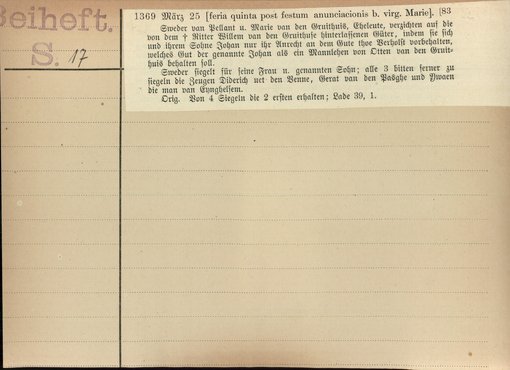 Beiheft.
S. 17
1369 März 25 [feria quinta post festum anunciacionis b. virg. Marie]. [83
Sweder van Pellant u. Marie van den Gruithuis, Eheleute, verzichten auf die
von dem † Ritter Willem van den Gruithuse hinterlassenen Güter, indem sie sich
und ihrem Sohne Johan nur ihr Anrecht an dem Gute thoe Verholt vorbehalten,
welches Gut der genannte Johan als ein Mannlehen von Otten van den Gruit-
huis behalten soll.
Sweder siegelt für seine Frau u. genannten Sohn; alle 3 bitten ferner zu
siegeln die Zeugen Diderich uet den Venne, Gerat van den Pasghe und Ywaen
die man van Eynghelsem.
Orig. Von 4 Siegeln die 2 ersten erhalten; Lade 39, 1.